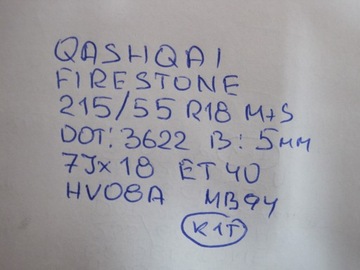 QASHQAI
FIRESTONE
215/55 R18 M+S
DOT: 3622 B: 5мм
7Jx18 ET 40
HV08A MB94
K1T